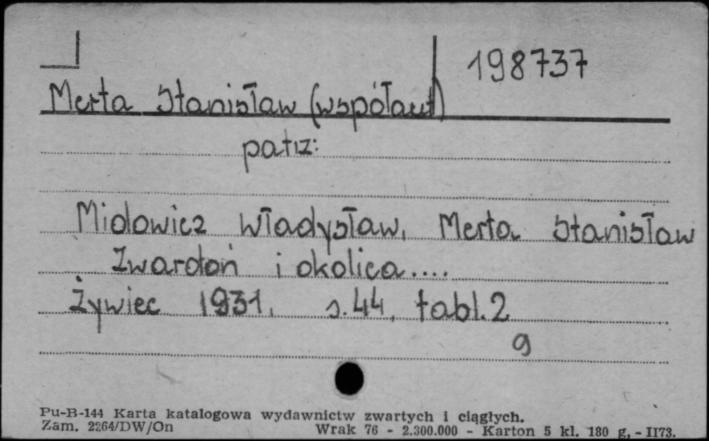 198737
Merta Stanisław (współaut)
patrz:
Miodowicz Władysław, Merta Stanisław
Zwardoń i okolica....
Żywiec 1931. s.44, tabl.2
g
Pu-B-144 Karta katalogowa wydawnictw zwartych i ciągłych.
Zam. 2264/DW/On Wrak 76 - 2.300.000 - Karton 5 kl. 180 g. - II73.